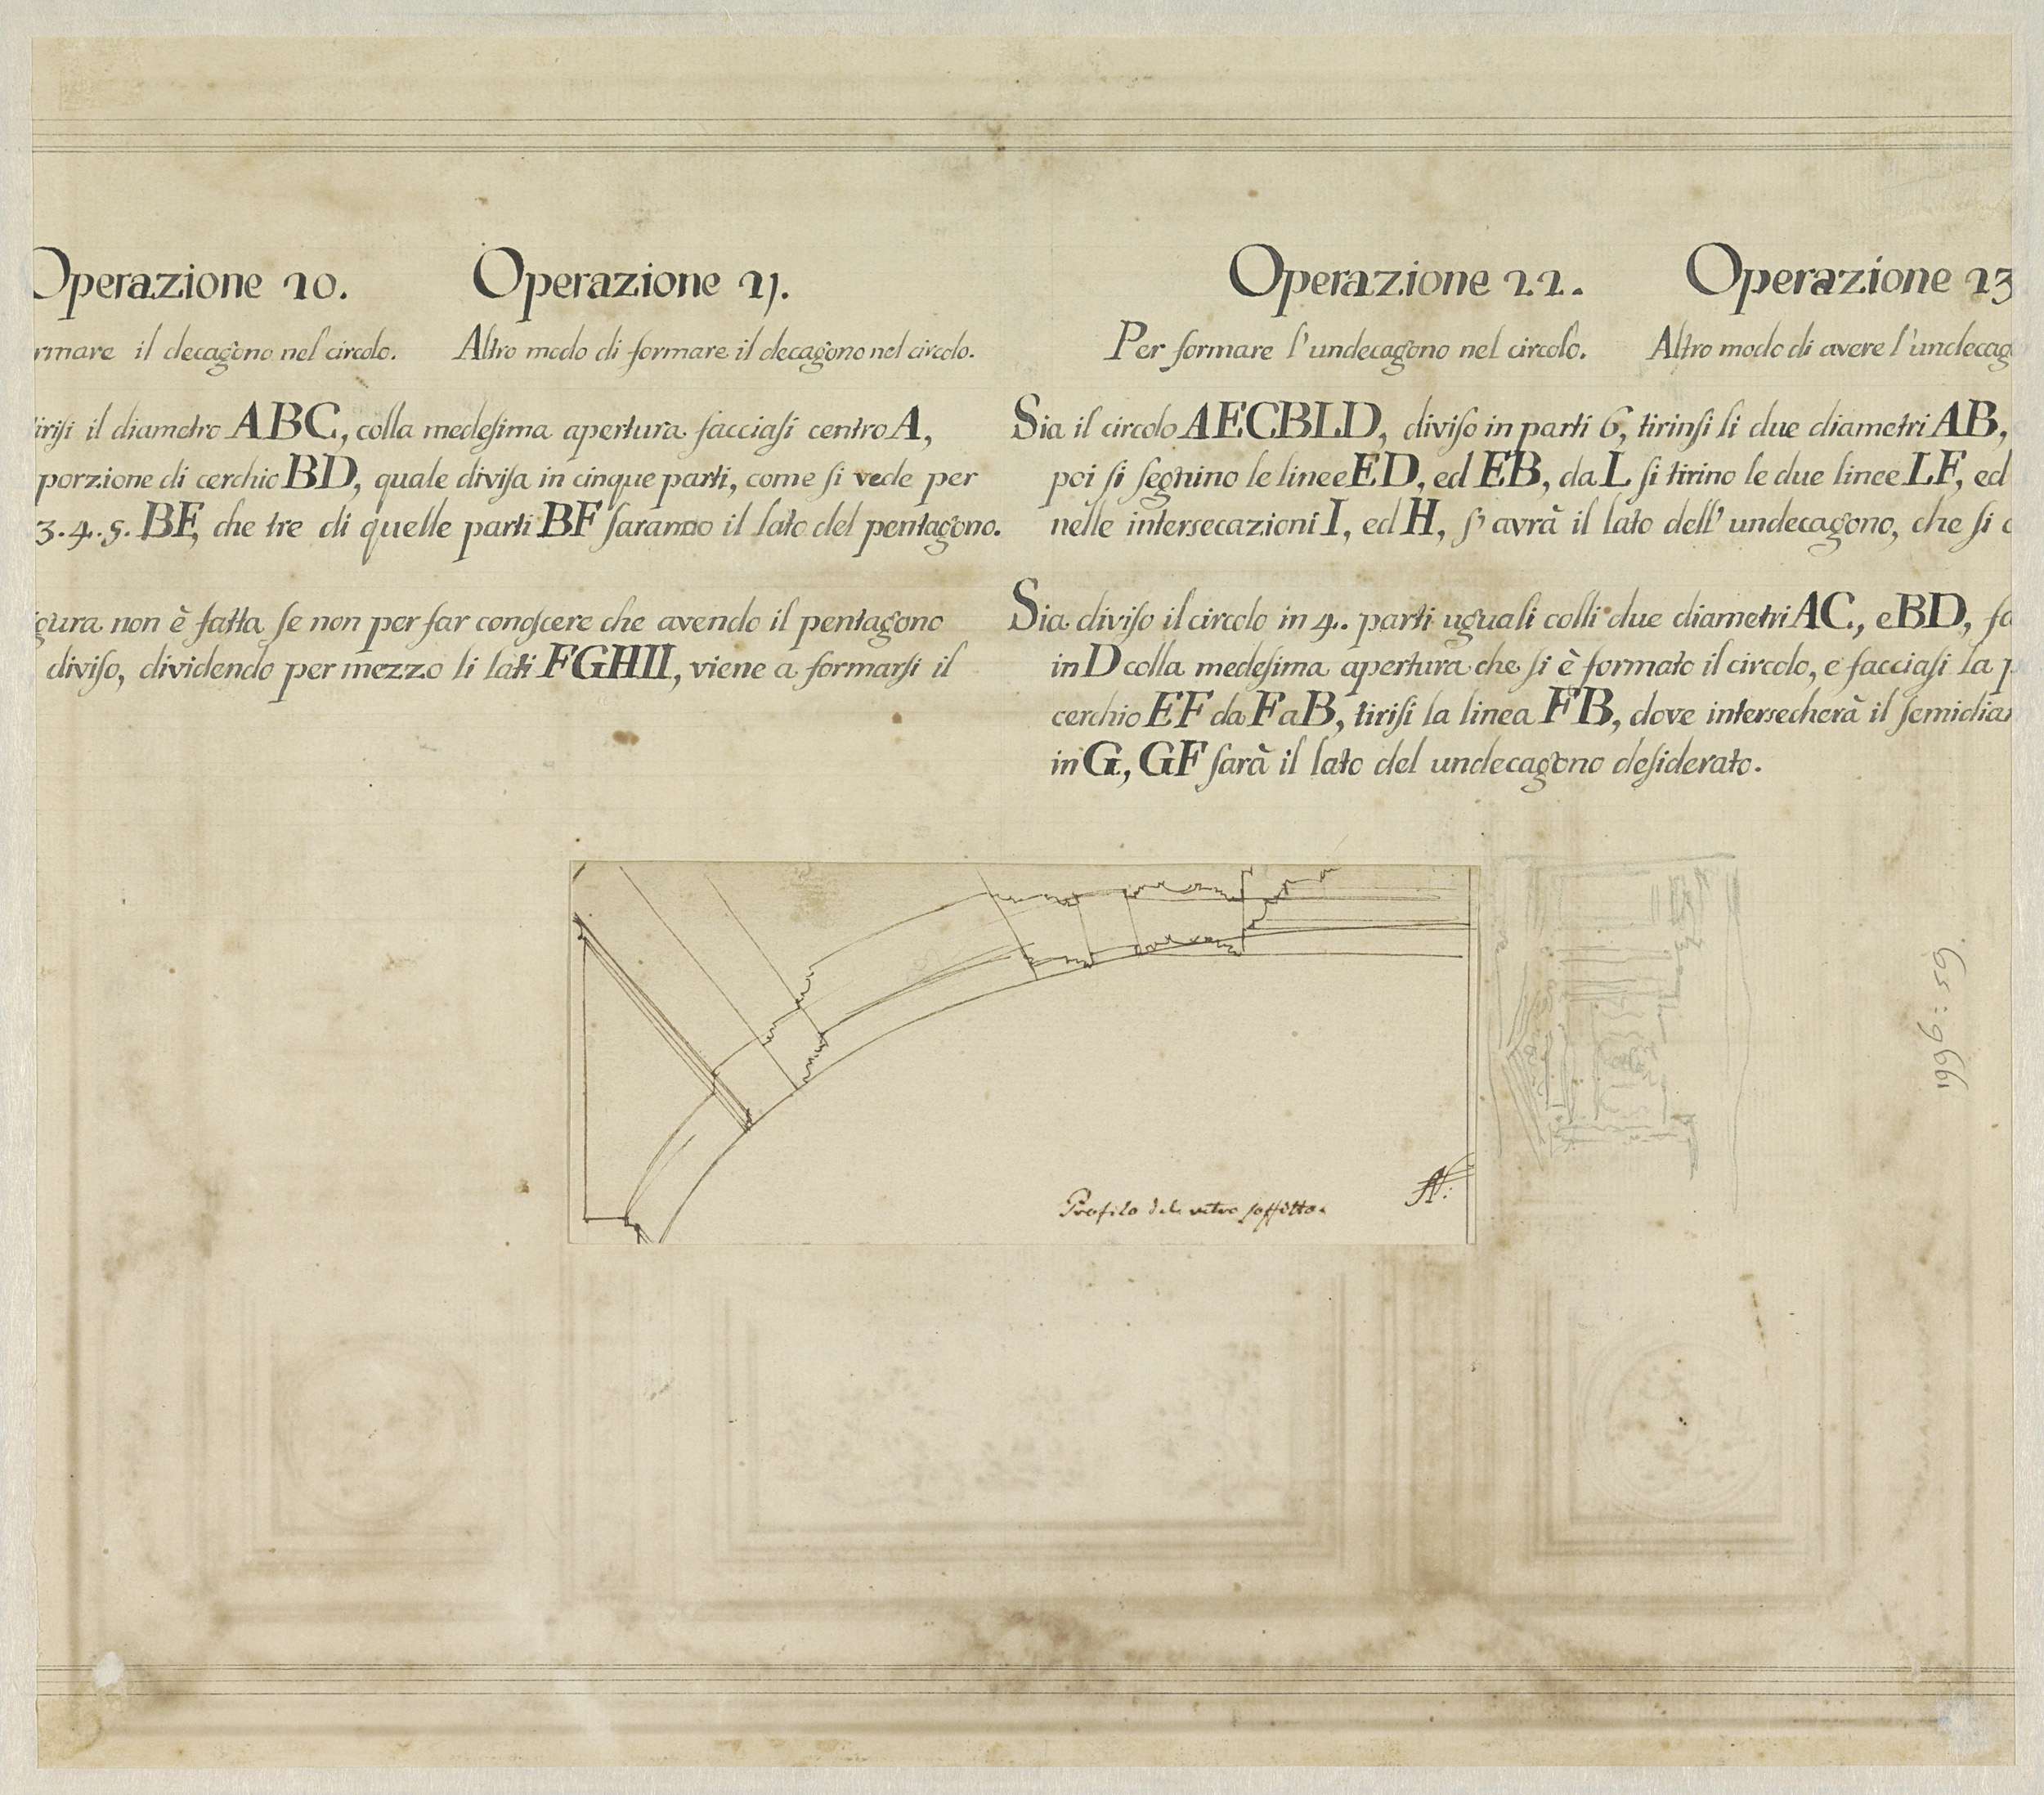 Operazione 20.
Operazione 21.
rmare il decagono nel circolo.
Altro modo di formare il decagono nel circolo.
irisi il diametro ABC, colla medesima apertura facciasi centro A,
porzione di cerchio BD, quale divisa in cinque parti, come si vede per
3.4.5. BF, che tre di quelle parti BF saranno il lato del pentagono.
gura non è fatta se non per far conoscere che avendo il pentagono
diviso, dividendo per mezzo li lati FGHII, viene a formarsi il
Operazione 22.
Operazione 23
Per formare l'undecagono nel circolo.
Altro modo di avere l'undecag
Sia il circolo AECBLD, diviso in parti 6, tirinsi li due diametri AB,
poi si segnino le linee ED, ed EB, da L si tirino le due linee LF, ed
nelle intersecazioni I, ed H, s'avrà il lato dell'undecagono, che si
Sia diviso il circolo in 4. parti uguali colli due diametri AC, e BD, fa
in D colla medesima apertura che si è formato il circolo, e facciasi la p
cerchio EF da F a B, tirisi la linea FB, dove intersecherà il semidia
in G, GF sarà il lato del undecagono desiderato.
Profilo del retro soffitto.
1996:59